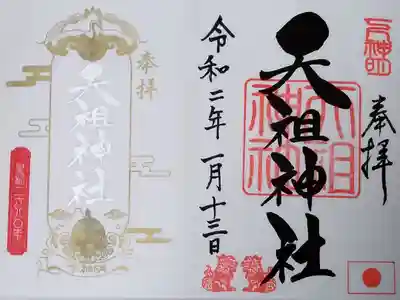 元神明
奉拝
天祖神社
令和二年一月十三日
奉拝
天祖神社
皇紀二六八〇年